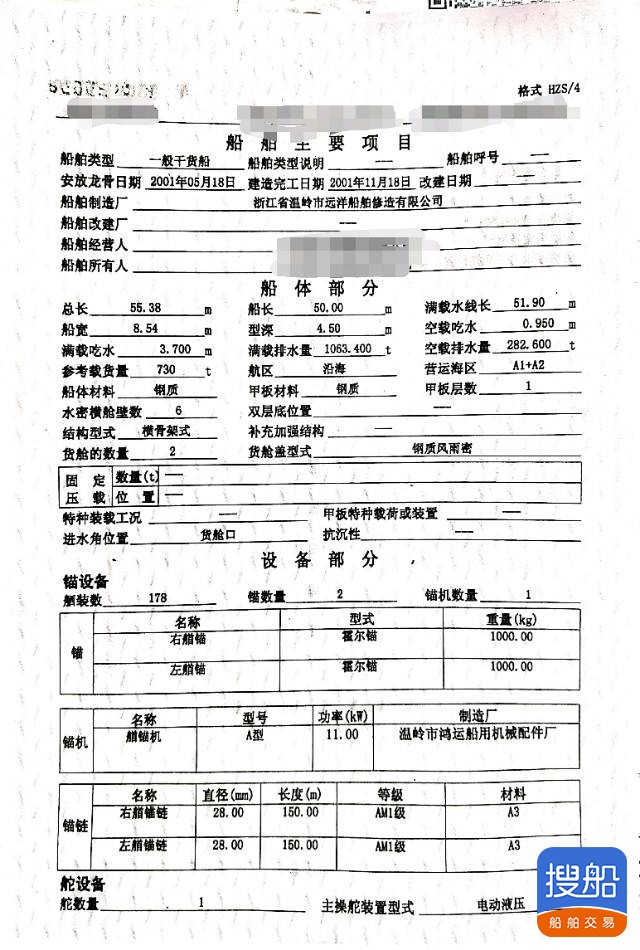 格式 HZS/4
船舶主要项目
船舶类型 一般干货船 船舶类型说明 — 船舶呼号 —
安放龙骨日期 2001年05月18日 建造完工日期 2001年11月18日 改建日期 —
船舶制造厂 浙江省温岭市远洋船舶修造有限公司
船舶改建厂 —
船舶经营人
船舶所有人
船体部分
总长 55.38 m 船长 50.00 m 满载水线长 51.90 m
船宽 8.54 m 型深 4.50 m 空载吃水 0.950 m
满载吃水 3.700 m 满载排水量 1063.400 t 空载排水量 282.600 t
参考载货量 730 t 航区 沿海 营运海区 A1+A2
船体材料 钢质 甲板材料 钢质 甲板层数 1
水密横舱壁数 6 双层底位置 —
结构型式 横骨架式 补充加强结构 —
货舱的数量 2 货舱盖型式 钢质风雨密
固定 数量(t) —
压载 位置 —
特种装载工况 — 甲板特种载荷或装置 —
进水角位置 货舱口 抗沉性 —
设备部分
锚设备
舾装数 178 锚数量 2 锚机数量 1
名称 型式 重量(kg)
锚 右艏锚 霍尔锚 1000.00
左艏锚 霍尔锚 1000.00
名称 型号 功率(kW) 制造厂
锚机 艏锚机 A型 11.00 温岭市鸿运船用机械配件厂
名称 直径(mm) 长度(m) 等级 材料
锚链 右艏锚链 28.00 150.00 AM1级 A3
左艏锚链 28.00 150.00 AM1级 A3
舵设备
舵数量 1 主操舵装置型式 电动液压
搜船
船舶交易